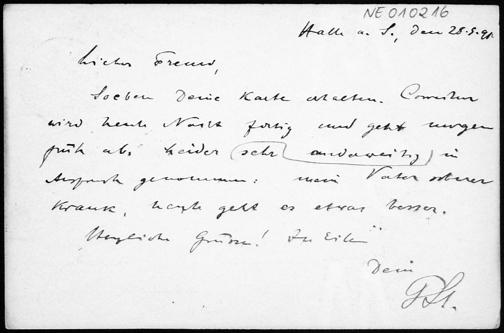 NE010216
Halle a. S., den 25.5.91.
Lieber Freund,
Soeben Deine Karte erhalten. Correctur
wird heute Nacht fertig und geht morgen
früh ab. Leider sehr anderweitig in
Anspruch genommen: mein Vater schwer
krank, heute geht es etwas besser.
Herzliche Grüsse! In Eile
Dein